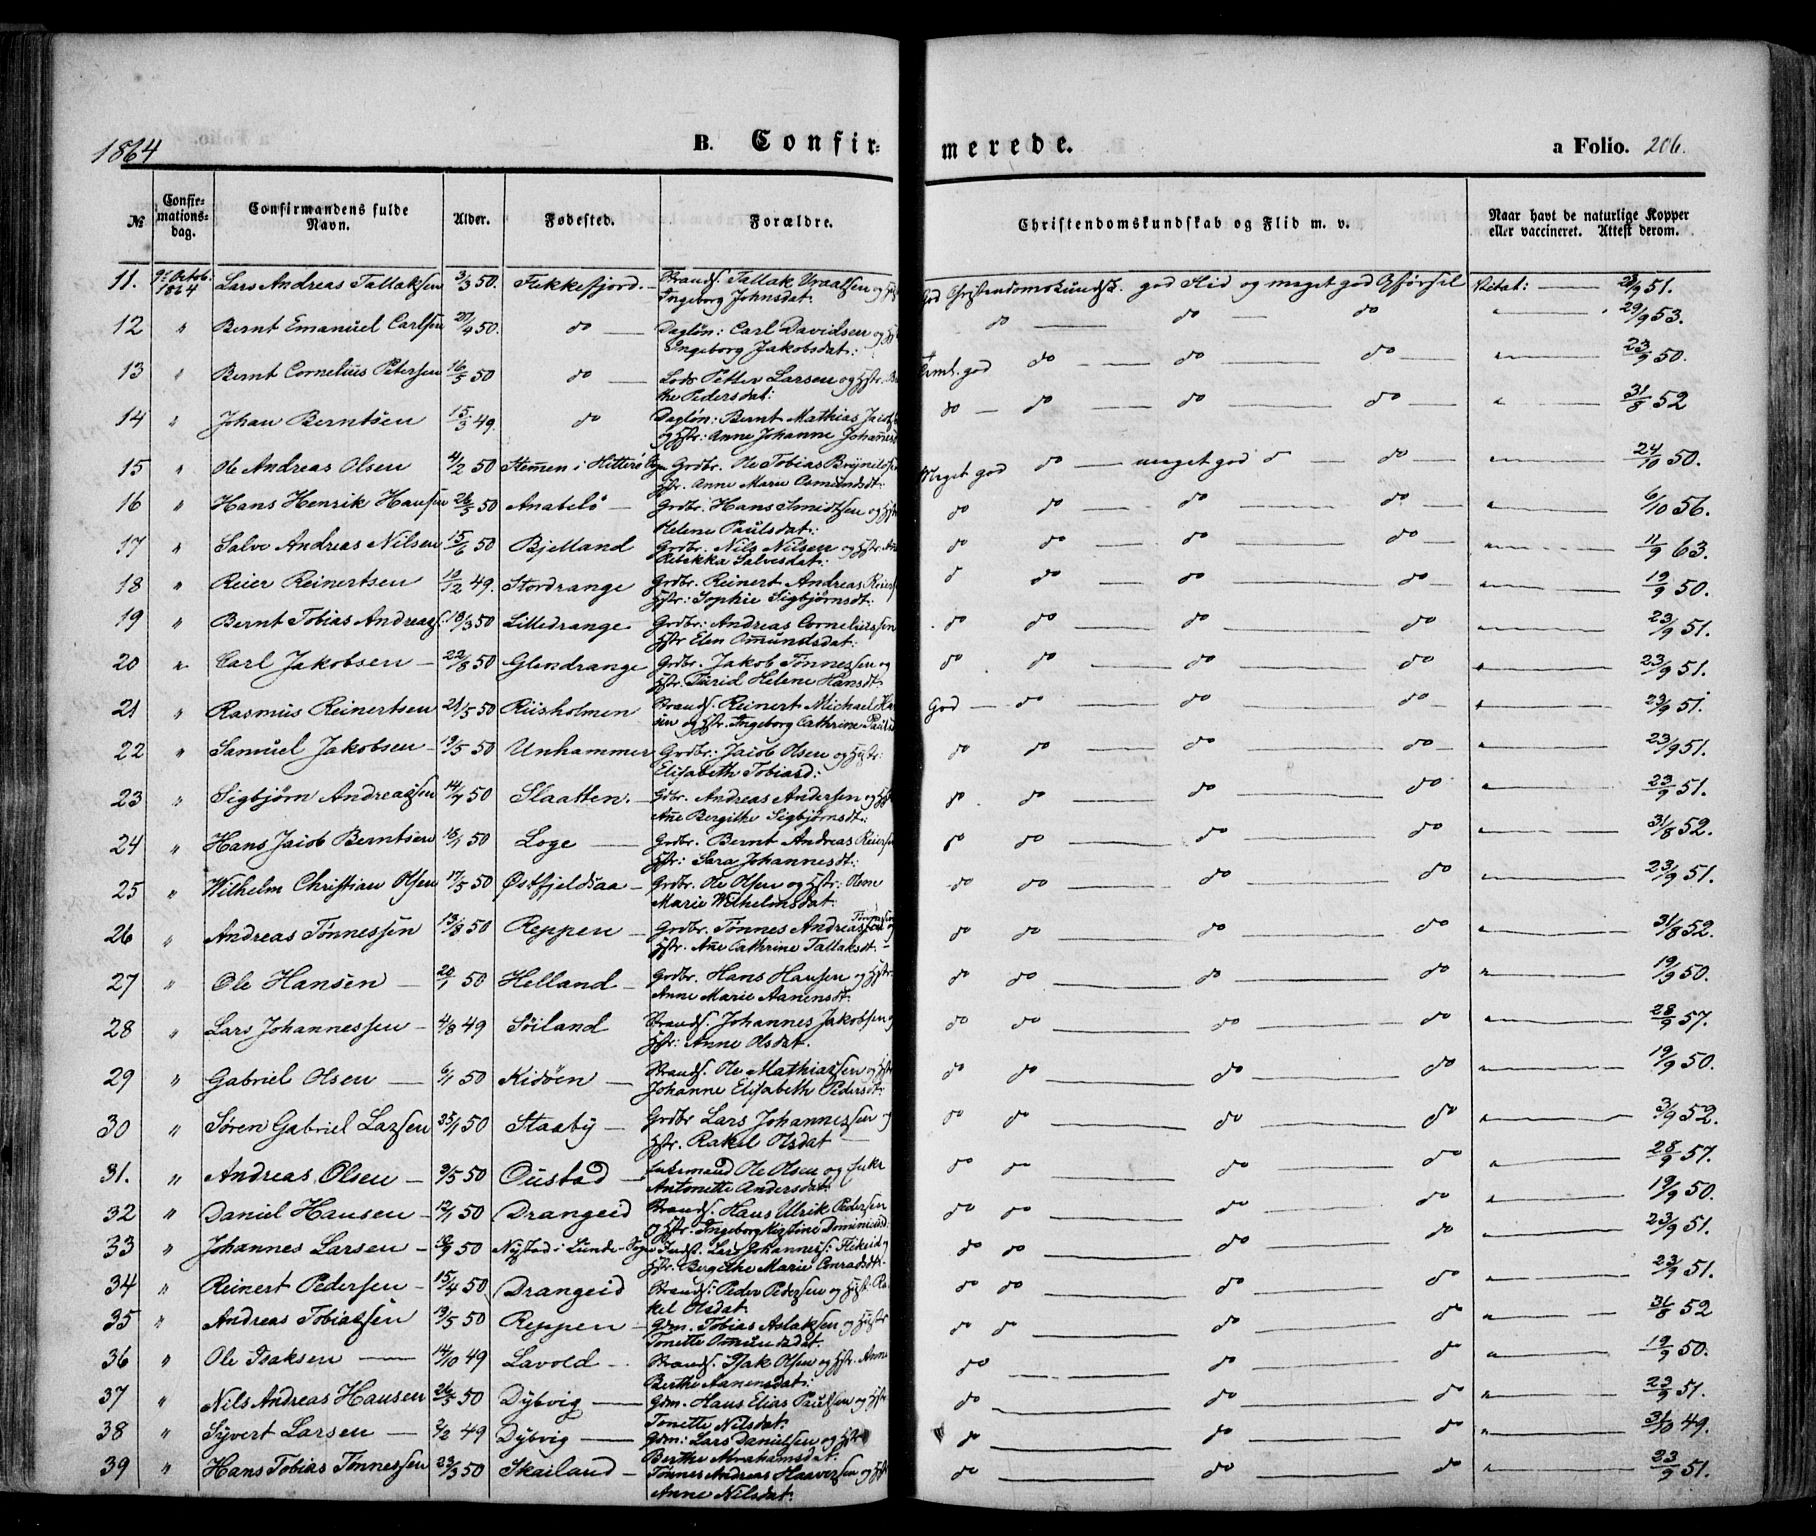 1864 B. Confir- merede. a Folio. 206.
№ Confirmations-dag. Confirmandens fulde Navn. Alder. Fødested. Forældre. Christendomskundskab og Flid m. v. Naar havt de naturlige Kopper eller vaccineret. Attest derom.
11. 9de Octob. 1864 Lars Andreas Tallaksen 3/3 50. Fekkefjord. Tallak og Ingeborg Johnsdat: God Christendomskundsk. god Flid og meget god Opførsel Attest: 51.
12 " Bernt Emanuel Carlsen 50. do Dagløn: Carl Davidsen og Ingeborg Jakobsdat: do do do " 29/9 53.
13 " Bernt Cornelius Petersen 16/5 50 do Lods Petter Larsen og Hstr. Pedersdat: god do do do " 23/9 50.
14 " Johan Berntsen 15/3 49. do Dagløn: Bernt Mathias og Hstr: Anne Johanne do do do do " 31/8 52
15 " Ole Andreas Olsen 4/2 50 Stemen i Hitterø Sogn Grdbr. Ole Tobias Hstr. Anne Marie Osmundsdt: Meget god do meget god do do " 24/10 50.
16 " Hans Henrik Hansen 26/5 50 Anabelø Grdbr. Hans Smidtsen og Helene Paulsdat: do do do do " 6/10 56.
17 " Salve Andreas Nilsen 15/6 50 Bjelland Grdbr. Nils Nilsen og Hstr. Rebekka Salvesdat: do do do do " 11/9 63.
18 " Reier Reinertsen 49. Stordrange Grdbr. Reinert Andreas Hstr: Sophie Sigbjørnsdt: do do do do " 19/9 50.
19 " Bernt Tobias Andreas. 50 Lilledrange Grdbr: Andreas Corneliussen Hstr Elen Omundsdat: do do do do " 23/9 51.
20 " Carl Jakobsen 22/8 50 Glendrange Grdbr: Jakob Tønnessen og Hstr. Turid Helene Hansdt: do do do do " 23/9 51.
21 " Rasmus Reinertsen 21/5 50 Riisholmen Reinert Michael og Hstr. Ingeborg Cathrine God do do do " 23/9 51.
22 " Samuel Jakobsen 19/5 50 Unhammer Grdbr: Jacob Olsen og Hstr: Elisabeth Tobiasd: do do do do " 23/9 51.
23 " Sigbjørn Andreassen 14/7 50 Slaatten. Gdbr. Andreas Andersen og Ane Bergithe Sigbjørnsdt: do do do do " 23/9 51.
24 " Hans Jacob Berntsen 18/1 50 Loge Grdbr. Bernt Andreas Hstr: Sara Johannesdt: do do do do " 31/8 52.
25 " Wilhelm Christian Olsen 17/5 50 Østfjeldsaa Grdbr: Ole Olsen og Hstr: Marie Wilhelmsdat: do do do do " 23/9 51.
26 " Andreas Tønnessen 13/8 50 Reppen Grdbr. Tønnes Andreas Hstr. Ane Cathrine Tallaksdt. do do do do " 31/8 52.
27 " Ole Hansen 20/1 50 Helland Grdbr. Hans Hansen og Hstr. Anne Marie Aanensdt: do do do do " 19/9 50.
28 " Lars Johannessen 4/8 49 Søiland Johannes Jakobsen og Hstr: Anne Olsdat. do do do do " 28/9 57.
29 " Gabriel Olsen 6/1 50 Kidøen Ole Mathiassen og Hstr Johanne Elisabeth Pedersdt: do do do do " 19/9 50.
30 " Søren Gabriel Larsen 25/1 50 Staaby Grdbr Lars Johannessen og Hstr. Rakel Olsdat do do do do " 3/9 52.
31. " Andreas Olsen 9/5 50 Oustad Ole Olsen og Antonette Andersdat: do do do do " 28/9 57.
32 " Daniel Hansen 12/1 50 Drangeid Hans Ulrik Pedersen og Hstr: Ingeborg do do do do " 19/9 50.
33 " Johannes Larsen 50 Nystad i Lunde Sogn Lars Johanness: Hstr. Bergithe Marie Conradsdt: do do do do " 23/9 51.
34 " Reinert Pedersen 15/4 50 Drangeid Peder Pedersen og Hstr. Rakel Olsdat do do do do " 23/9 51.
35 " Andreas Tobiassen 13/5 50 Reppen Gdm. Tobias Aslaksen og Hstr Tonette Omundsdat. do do do do " 31/8 52
36 " Ole Isaksen 14/10 49 Lavold Isak Olsen og Hstr. Anne Berthe Aanensdat: do do do " 19/9 50.
37 " Nils Andreas Hansen 26/5 50 Dybvig Gdm. Hans Elias Paulsen og Hstr Tonette Nilsdat. do do do " 23/9 51.
38 " Syvert Larsen 2/2 49 Dybvig Gdm: Lars Danielsen og Hstr Berthe Abrahamsdat. do do do " 31/10 49.
39 " Hans Tobias Tønnessen 23/3 50 Skailand Tønnes Andreas Haaversen og Hstr Anne Nilsdat. do do do " 23/9 51.